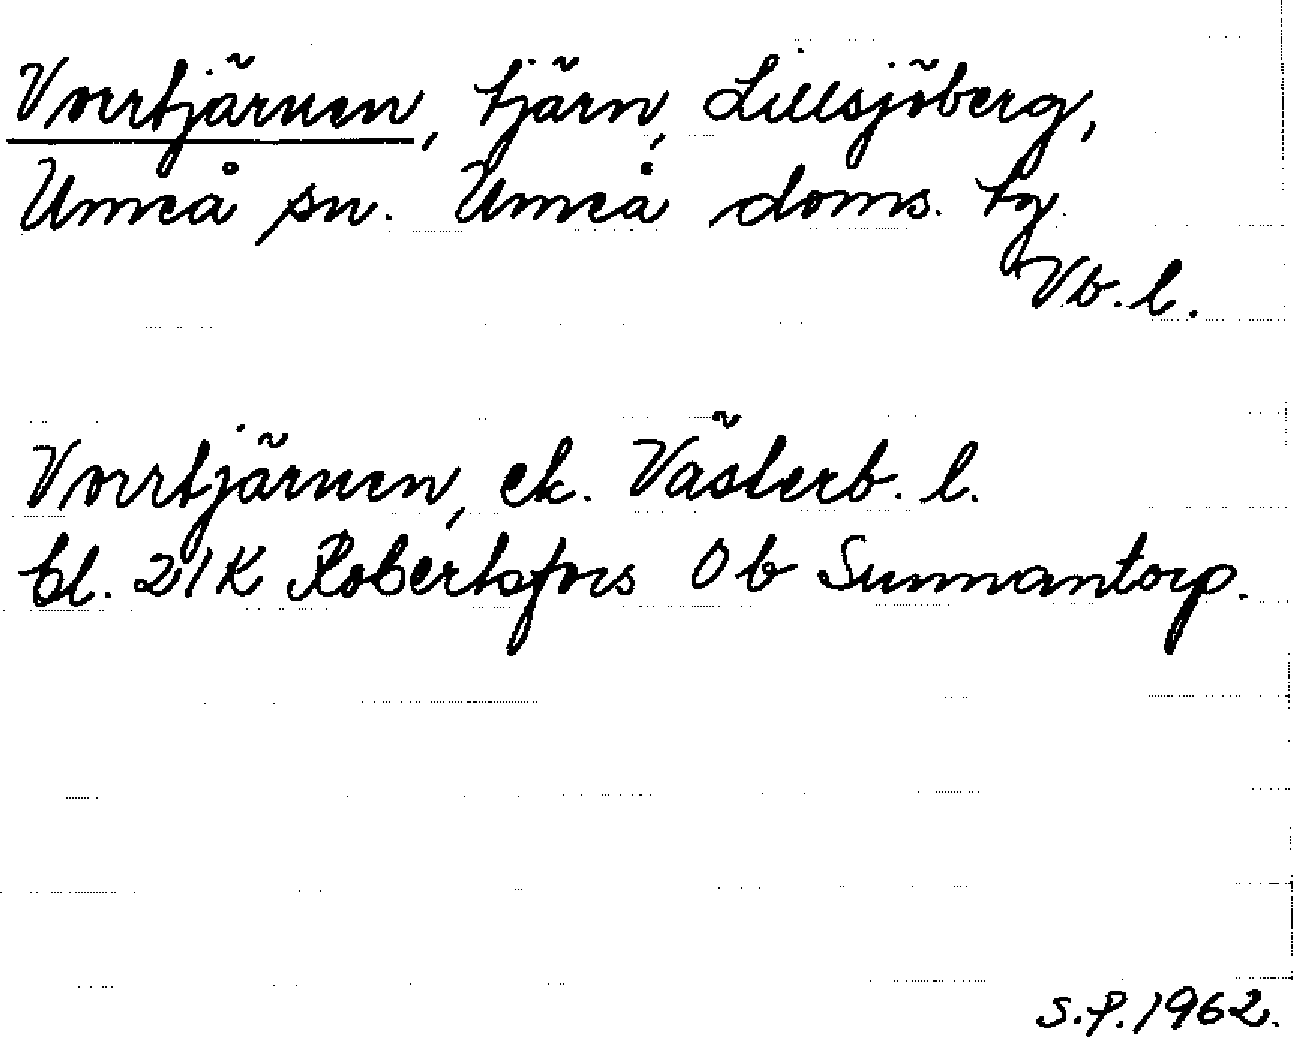 Vorrtjärnen, tjärn, Lillsjöberg,
Umeå sn. Umeå doms. tg.
Vb. l.
Vorrtjärnen, ek. Västerb. l.
bl. 21K Robertsfors Ob Sunnantorp.
S.P. 1962.